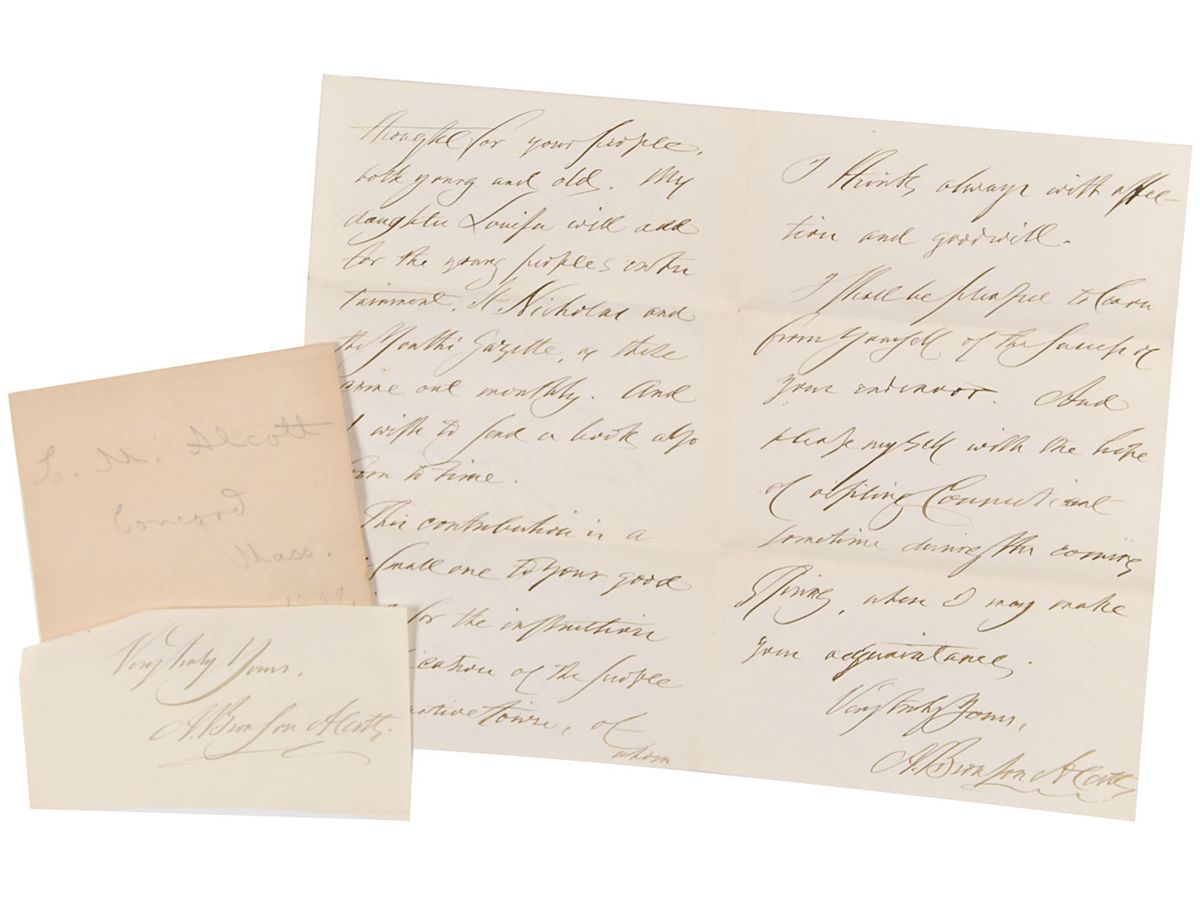 thought for your people,
both young and old. My
daughter Louisa will add
for the young peoples enter
tainment, St Nicholas and
the Youths Gazette, as these
come out monthly. And
I wish to send a book also
from time to time.
This contribution is a
small one to your good
for the instruction
of the people
native town, of
whom
I think always with affec-
tion and goodwill.
I shall be pleased to learn
from yourself of the success of
your endeavor. And
please myself with the hope
of visiting Connecticut
sometime during the coming
Spring, when I may make
your acquaintance.
Very truly Yours,
A. Bronson Alcott.
L. M. Alcott
Concord
Mass.
Very truly Yours,
A. Bronson Alcott.